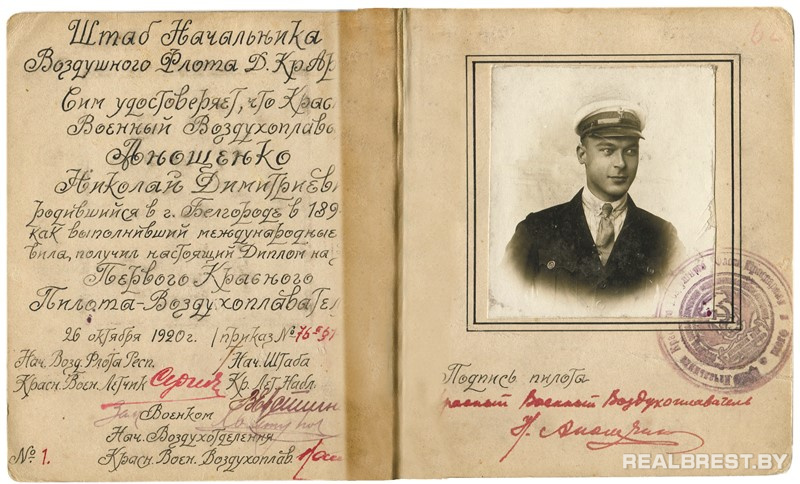 Штаб Начальника
Воздушного Флота Д. Кр. Ар
Сим удостоверяет, что Крас
Военный Воздухоплава
Аношенко
Николай Димитриеви
родившийся в г. Белгороде в 189
как выполнивший международные
вила, получил настоящий Диплом на
Первого Красного
Пилота-Воздухоплавател
26 октября 1920 г. приказ №
Нач. Возд. Флота Респ.
Красн. Воен. Летчик
Нач. Штаба
Кр. Лет. Набл.
Зам
Военком
Нач. Воздухотделения
№ 1. Красн. Воен. Воздухоплав.
Подпись пилота
расный Военный Воздухоплаватель
Н. Аношенко
REALBREST.BY